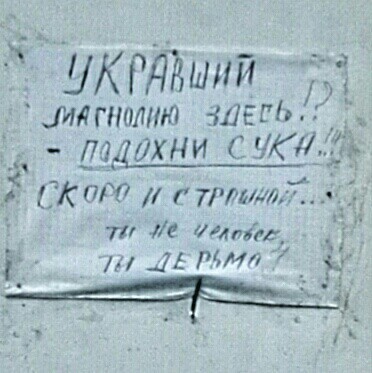 УКРАВШИЙ
МАГНОЛИЮ ЗДЕСЬ!?
- ПОДОХНИ СУКА!!!
СКОРО И СТРАШНОЙ...
ТЫ НЕ ЧЕЛОВЕК,
ТЫ ДЕРЬМО!